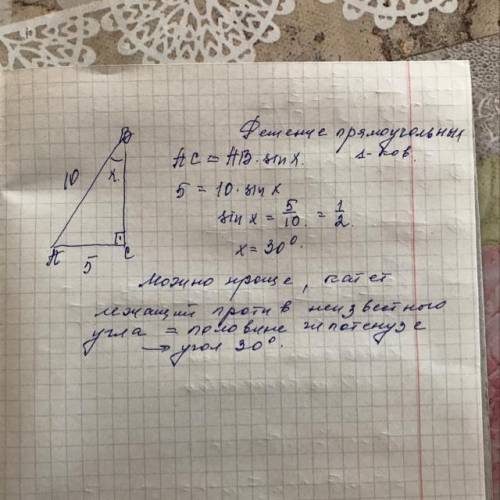 Решение прямоугольных
Δ-ков.
AC = AB · sin x.
5 = 10 · sin x
sin x = 5/10 = 1/2.
x = 30°.
B
10
x
A
5
C
Можно проще, катет
лежащий против неизвестного
угла = половине гипотенузе
→ угол 30°.